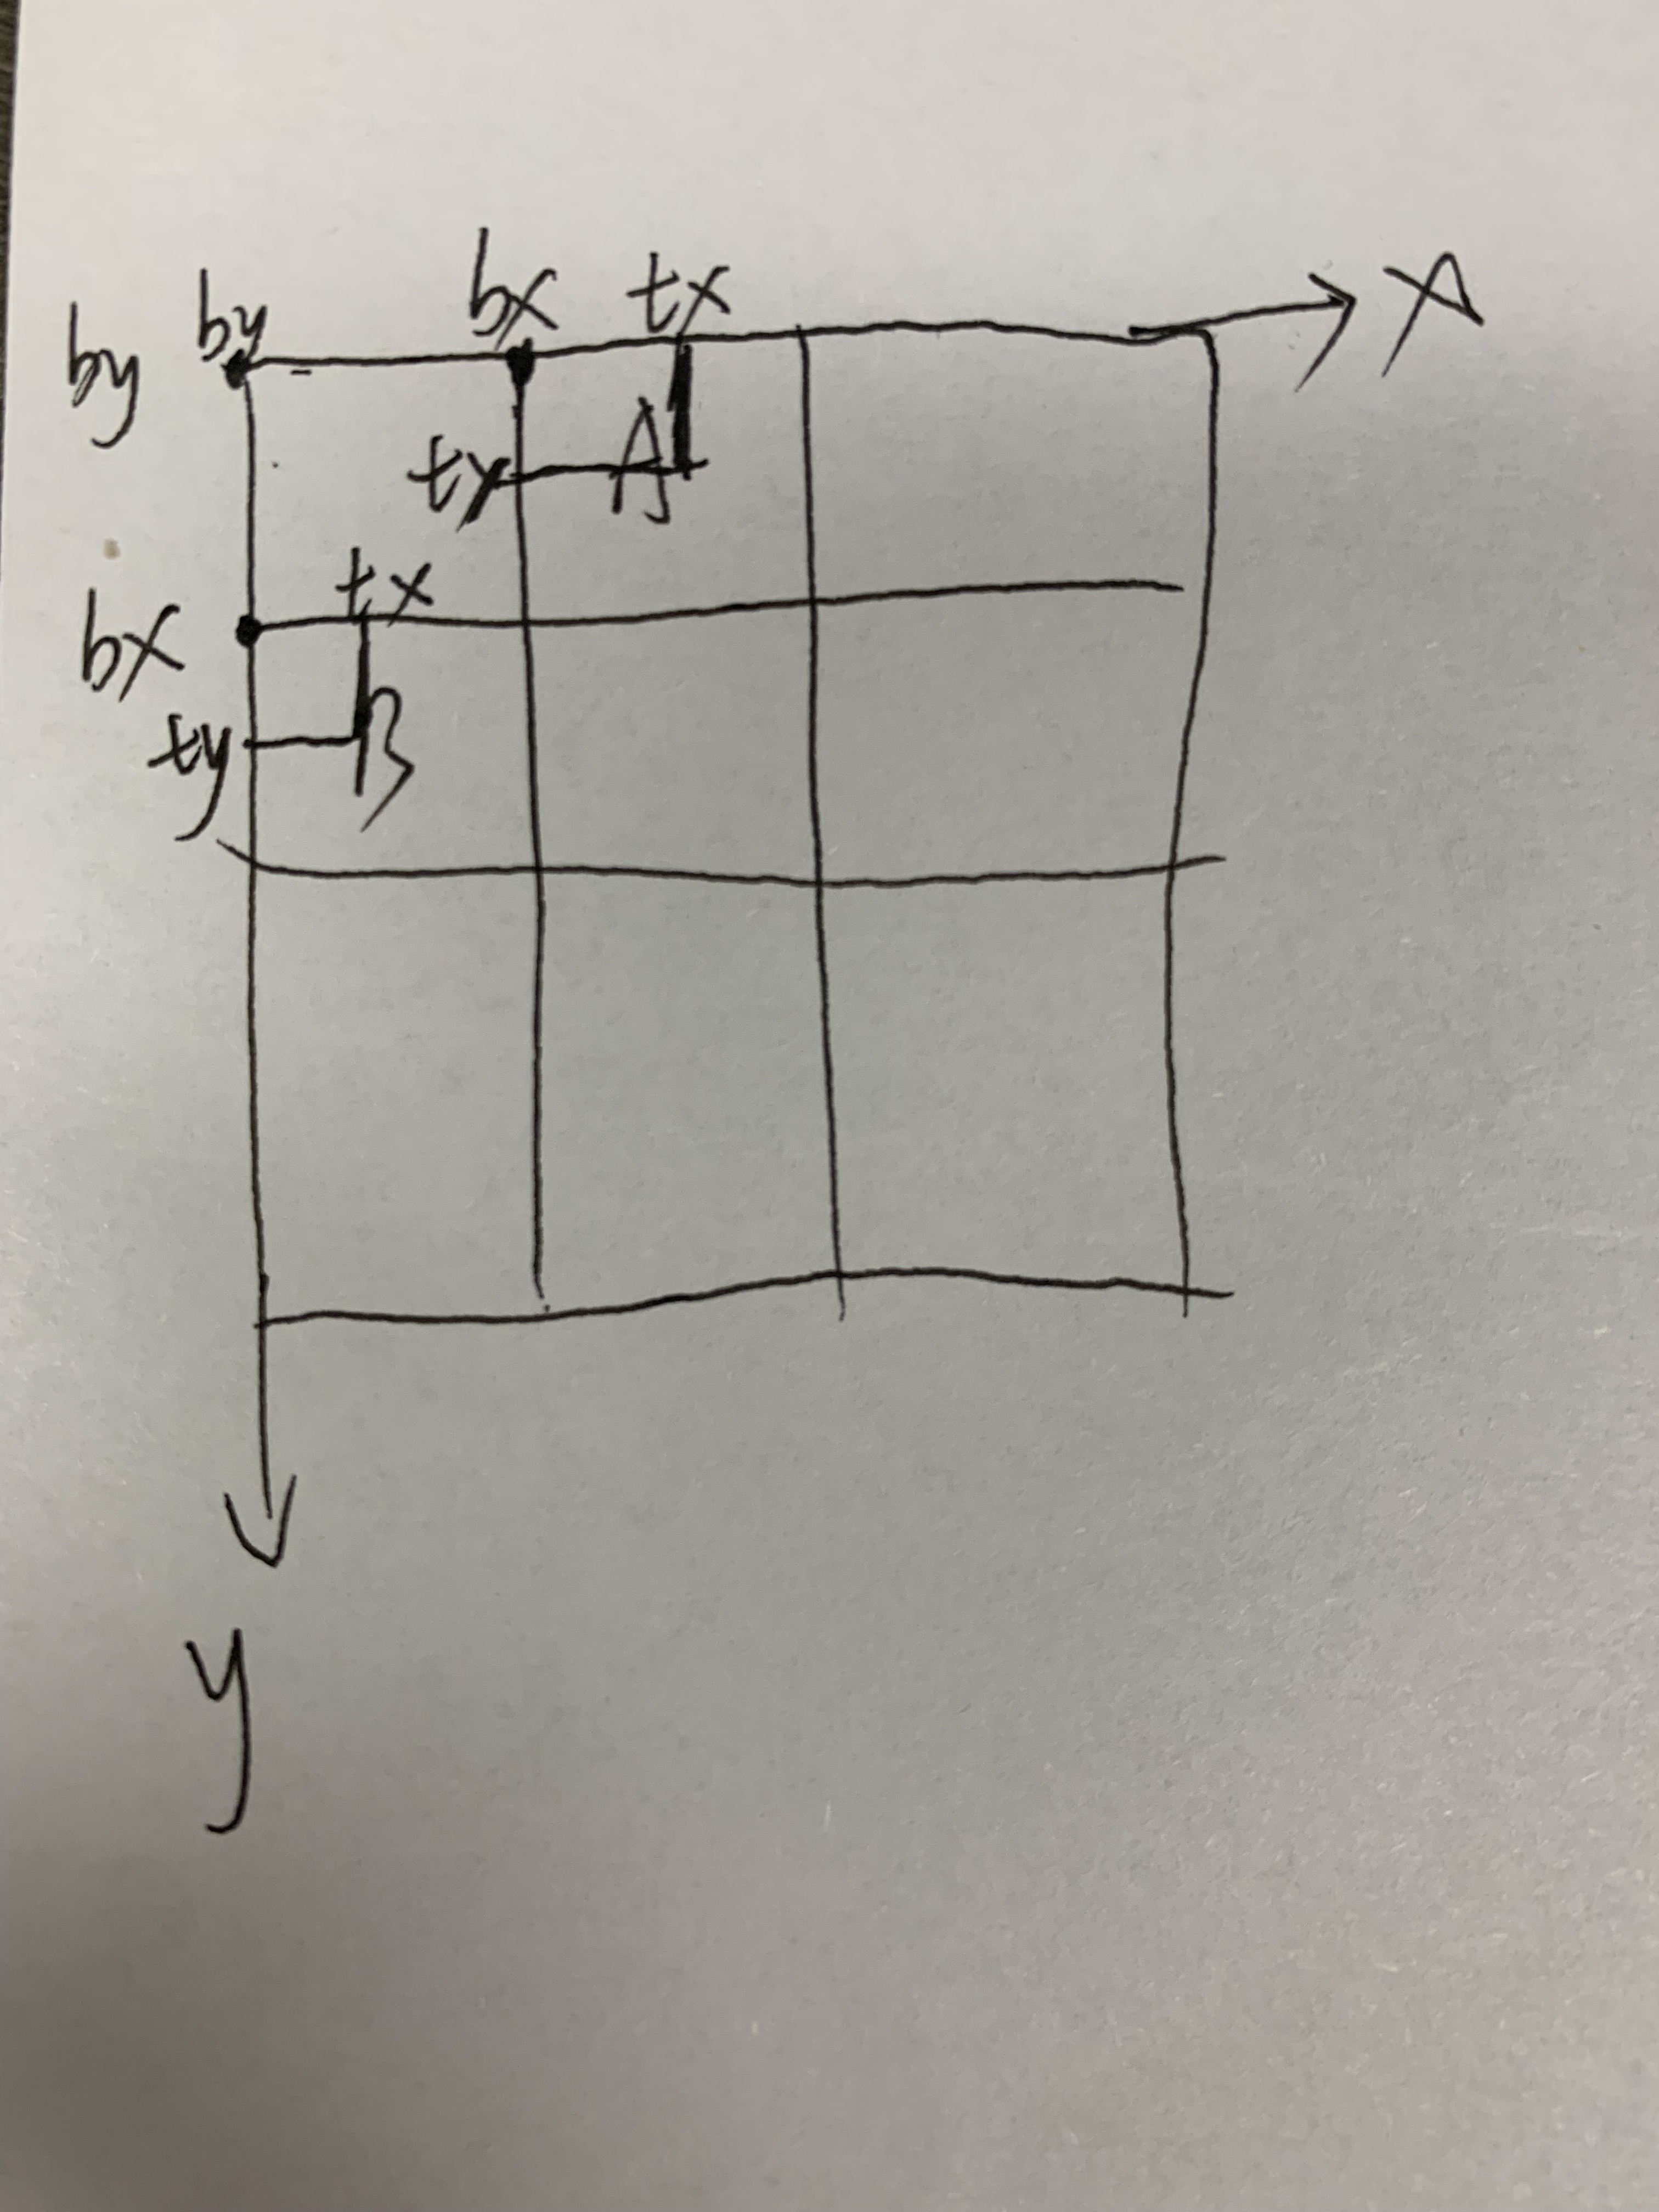 by by bx tx X
ty A
tx
bx
ty B
y